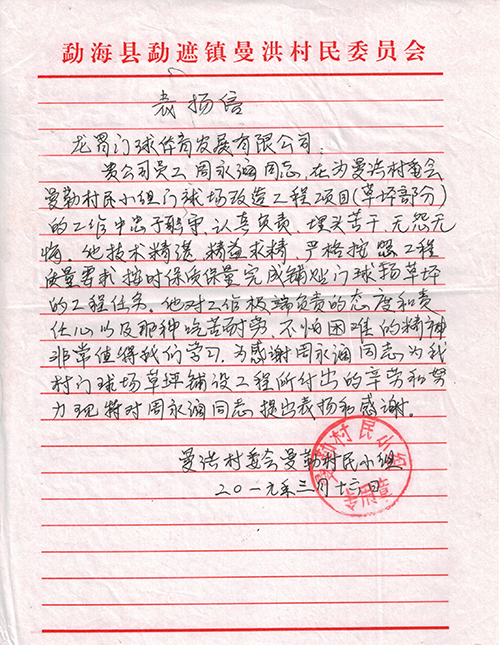 勐海县勐遮镇曼洪村民委员会
表扬信
龙胃门球体育发展有限公司:
贵公司员工周永涵同志,在为曼洪村委会
曼勒村民小组门球场改造工程项目(草坪部分)
的工作中忠于职守、认真负责、埋头苦干、无怨无
悔。他技术精湛、精益求精,严格按照工程
质量要求按时保质保量完成铺设门球场草坪
的工程任务。他对工作极端负责的态度和责
任心以及那种吃苦耐劳、不怕困难的精神
非常值得我们学习。为感谢周永涵同志为我
村门球场草坪铺设工程所付出的辛劳和努
力现特对周永涵同志提出表扬和感谢。
曼洪村委会曼勒村民小组
二〇一九年三月十六日
曼勒村民小组
专用章